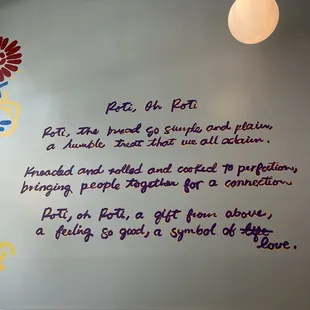 Roti, Oh Roti
Roti, the bread so simple and plain,
a humble treat that we all acclaim.
Kneaded and rolled and cooked to perfection,
bringing people together for a connection
Roti, oh Roti, a gift from above,
a feeling so good, a symbol of life
love.